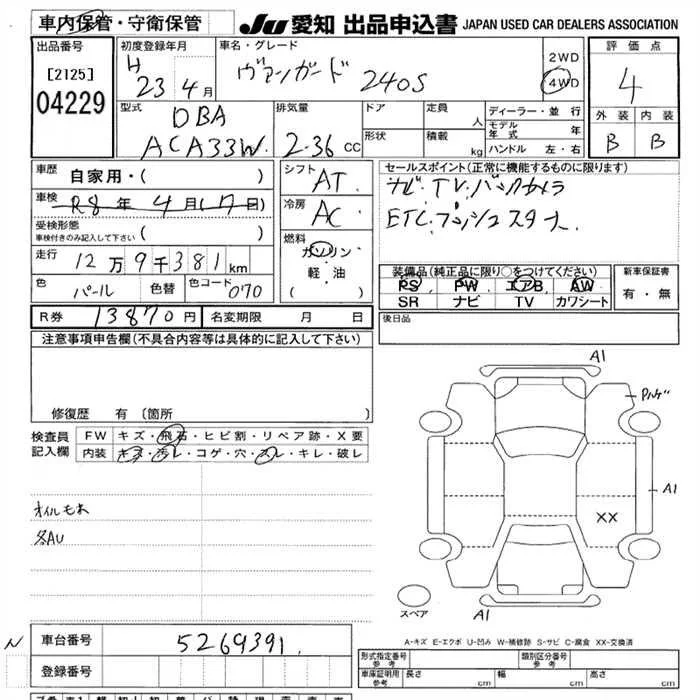 車内保管・守衛保管
JU 愛知 出品申込書 JAPAN USED CAR DEALERS ASSOCIATION
出品番号
[2125]
04229
初度登録年月
H 23 4月
車名・グレード
ヴァンガード 240S
2WD
4WD
評価点
4
外装 内装
B B
型式
DBA
ACA33W
排気量
2.36 cc
ドア
形状
定員
人
積載
kg
ディーラー・並行
モデル年式 年
ハンドル 左・右
車歴
自家用・( )
車検 R8 年 4 月 (17 日)
受検形態
車検付きのみ記入して下さい ( )
走行 12万9千381km
色 パール 色替 色コード 070
シフト AT
冷房 AC
燃料
ガソリン
軽・油
( )
セールスポイント(正常に機能するものに限ります)
ナビ・TV.バックカメラ
ETC.プッシュスタート
装備品(純正品に限り○をつけてください)
PS PW エアB AW
SR ナビ TV カワシート
新車保証書
有・無
後日品
R券 13870円 名変期限 月 日
注意事項申告欄(不具合内容等は具体的に記入して下さい)
修復歴 有〔箇所 〕
検査員記入欄
FW キズ・飛石・ヒビ割・リペア跡・X要
内装 キズ・汚レ・コゲ・穴・スレ・キレ・破レ
オイルモれ
各AU
A1
A1
XX
A1
スペア
A-キズ E-エクボ U-凹み W-補修跡 S-サビ C-腐食 XX-交換済
N
車台番号 5269391
登録番号
形式指定番号 参考
類別区分番号 参考
車庫証明用 参考 長さ cm 幅 cm 高さ cm